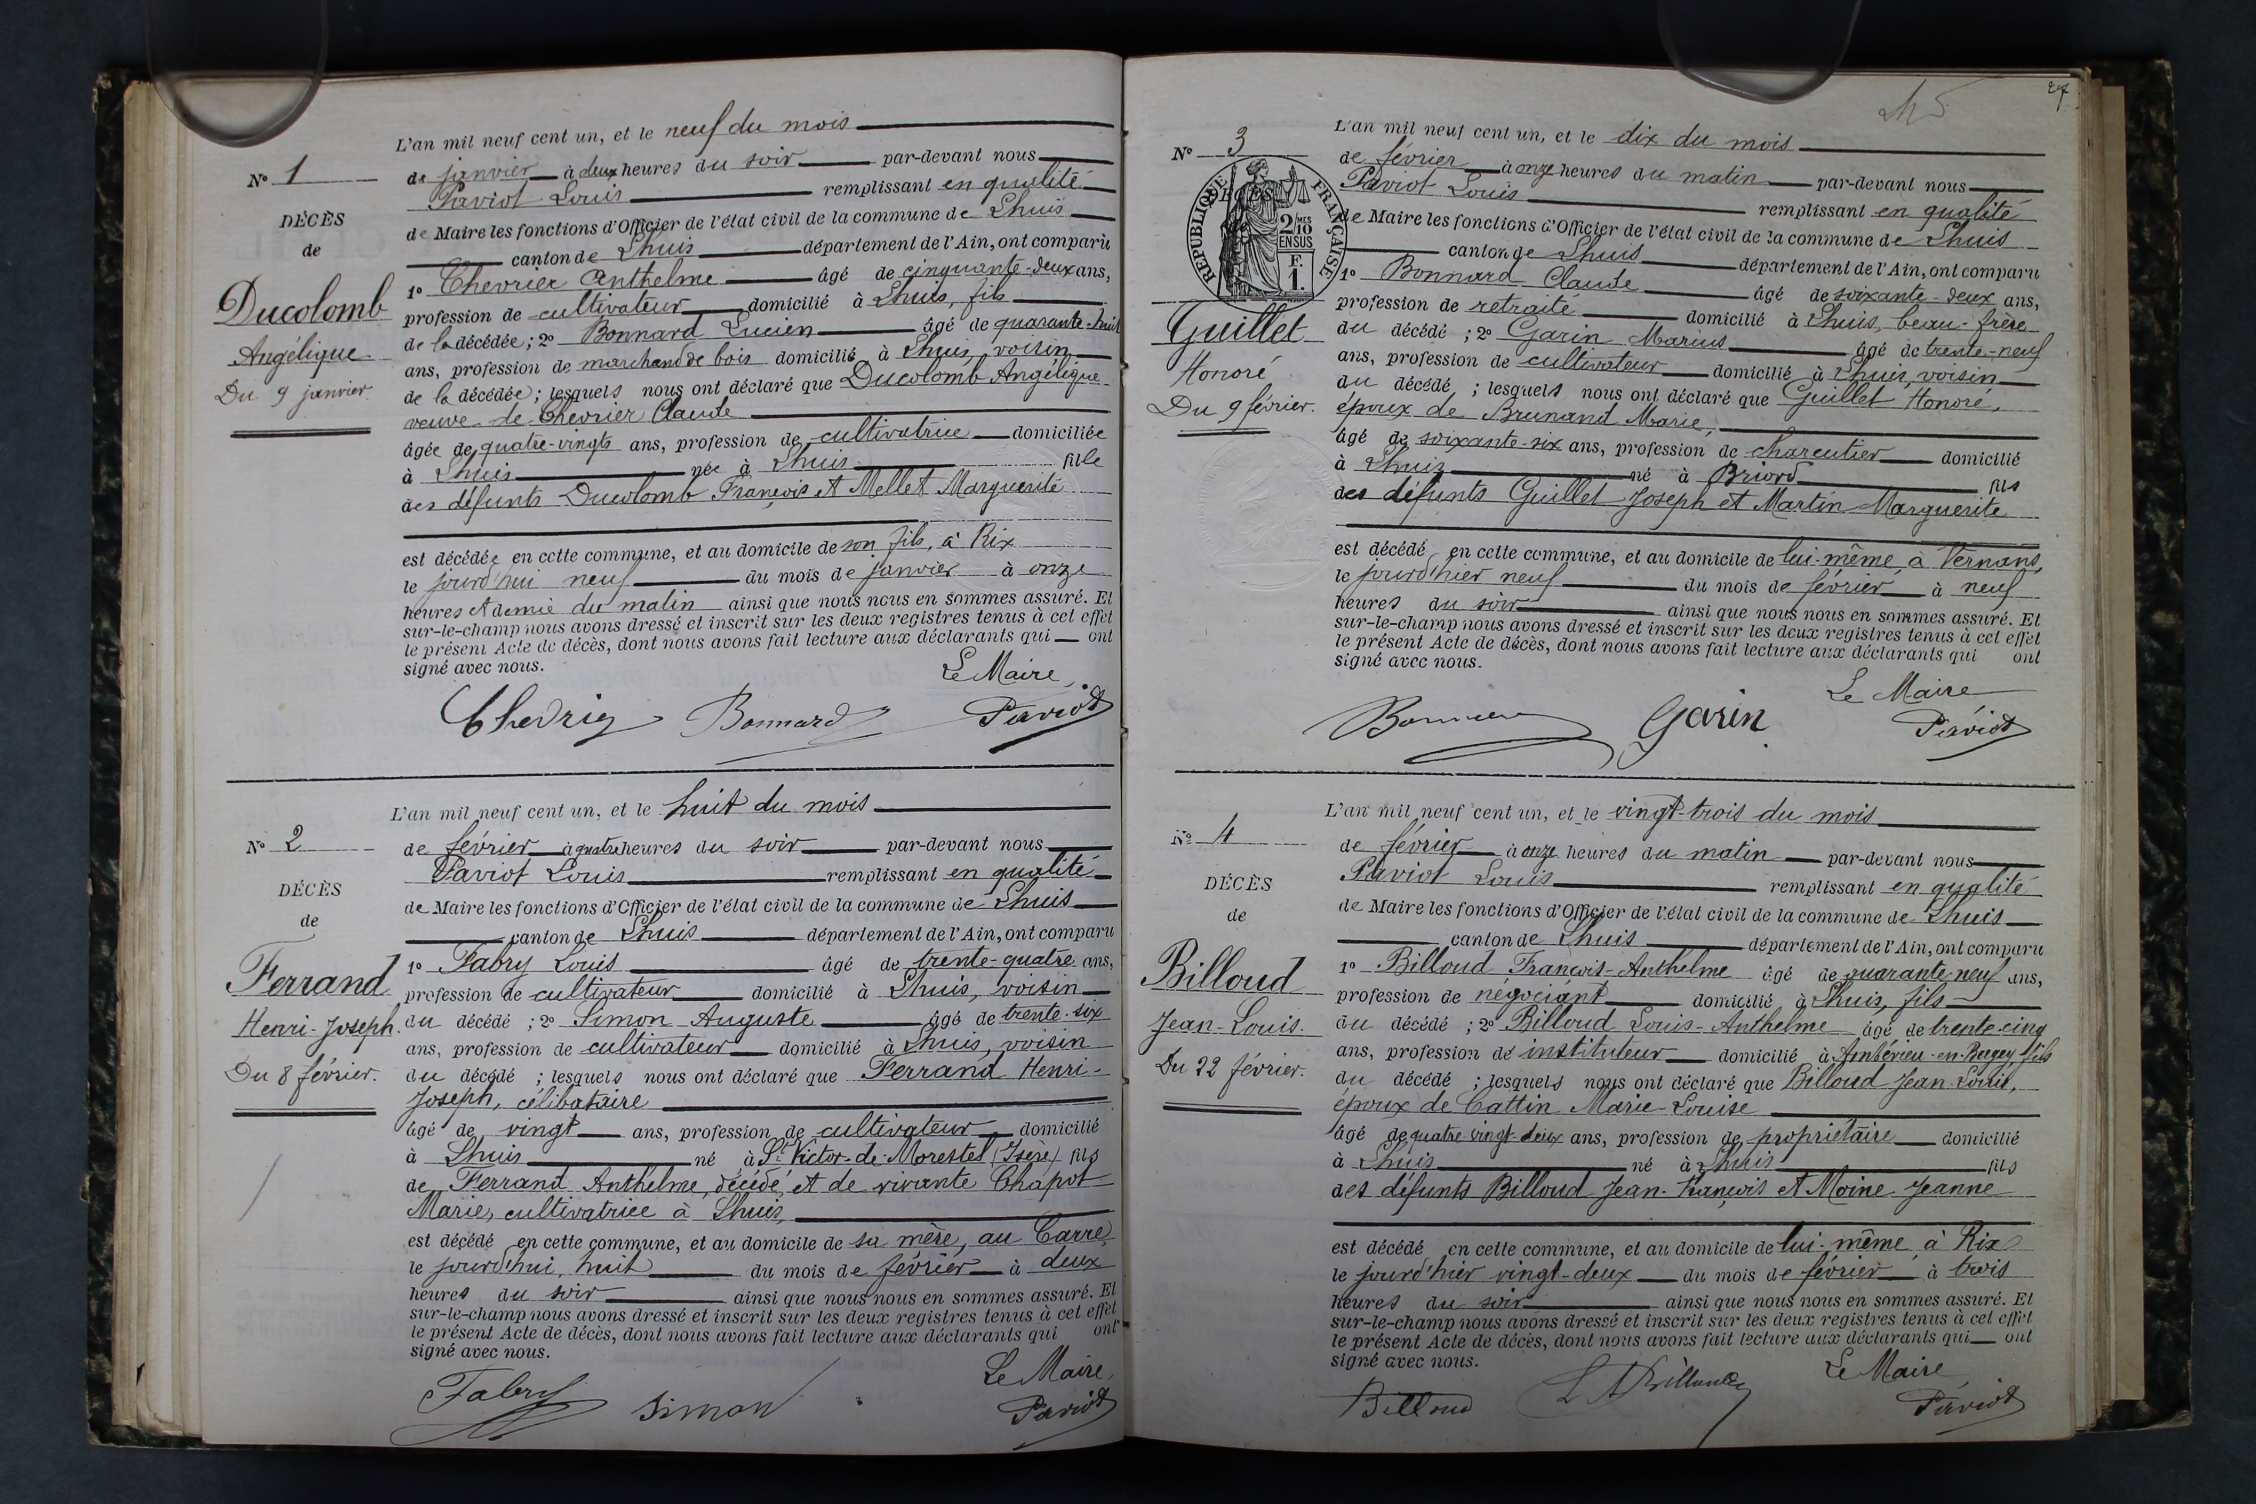 L'an mil neuf cent un, et le neuf du mois
N° 1
de janvier à deux heures du soir par-devant nous
Paviot Louis remplissant en qualité
DÉCÈS
de Maire les fonctions d'Officier de l'état civil de la commune de Lhuis
de
canton de Lhuis département de l'Ain, ont comparu
1° Chevrier Anthelme âgé de cinquante-deux ans,
Ducolomb
profession de cultivateur domicilié à Lhuis, fils
de la décédée; 2° Bonnard Lucien âgé de quarante-huit
Angélique
ans, profession de marchand de bois domicilié à Lhuis, voisin
Du 9 janvier.
de la décédée; lesquels nous ont déclaré que Ducolomb Angélique
veuve de Chevrier Claude
âgée de quatre-vingts ans, profession de cultivatrice domiciliée
à Lhuis née à Lhuis fille
des défunts Ducolomb François et Mellet Marguerite
est décédée en cette commune, et au domicile de son fils, à Rix
le jourd'hui neuf du mois de janvier à onze
heures et demie du matin ainsi que nous nous en sommes assuré. Et
sur-le-champ nous avons dressé et inscrit sur les deux registres tenus à cet effet
le présent Acte de décès, dont nous avons fait lecture aux déclarants qui ont
signé avec nous.
Le Maire,
Chevrier Bonnard Paviot
L'an mil neuf cent un, et le huit du mois
N° 2
de février à quatre heures du soir par-devant nous
Paviot Louis remplissant en qualité
DÉCÈS
de Maire les fonctions d'Officier de l'état civil de la commune de Lhuis
de
canton de Lhuis département de l'Ain, ont comparu
1° Fabry Louis âgé de trente-quatre ans,
Ferrand
profession de cultivateur domicilié à Lhuis, voisin
Henri-Joseph.
du décédé; 2° Simon Auguste âgé de trente-six
ans, profession de cultivateur domicilié à Lhuis, voisin
Du 8 février.
du décédé; lesquels nous ont déclaré que Ferrand Henri-
Joseph, célibataire
âgé de vingt ans, profession de cultivateur domicilié
à Lhuis né à St Victor-de-Morestel (Isère) fils
de Ferrand Anthelme, décédé, et de vivante Chapot
Marie, cultivatrice à Lhuis,
est décédé en cette commune, et au domicile de sa mère, au Carre,
le jourd'hui, huit du mois de février à deux
heures du soir ainsi que nous nous en sommes assuré. Et
sur-le-champ nous avons dressé et inscrit sur les deux registres tenus à cet effet
le présent Acte de décès, dont nous avons fait lecture aux déclarants qui ont
signé avec nous.
Le Maire,
Fabry Simon Paviot
27
L'an mil neuf cent un, et le dix du mois
N° 3
de février à onze heures du matin par-devant nous
Paviot Louis remplissant en qualité
DÉCÈS
RÉPUBLIQUE FRANÇAISE
2/10 EN SUS
F. 1.
de Maire les fonctions d'Officier de l'état civil de la commune de Lhuis
canton de Lhuis département de l'Ain, ont comparu
1° Bonnard Claude âgé de soixante-deux ans,
profession de retraité domicilié à Lhuis, beau-frère
Guillet
du décédé; 2° Garin Marius âgé de trente-neuf
Honoré
ans, profession de cultivateur domicilié à Lhuis, voisin
Du 9 février.
du décédé; lesquels nous ont déclaré que Guillet Honoré,
époux de Brunand Marie,
âgé de soixante-six ans, profession de charcutier domicilié
à Lhuis né à Briord fils
des défunts Guillet Joseph et Martin Marguerite
est décédé en cette commune, et au domicile de lui-même, à Vernans,
le jourd'hier neuf du mois de février à neuf
heures du soir ainsi que nous nous en sommes assuré. Et
sur-le-champ nous avons dressé et inscrit sur les deux registres tenus à cet effet
le présent Acte de décès, dont nous avons fait lecture aux déclarants qui ont
signé avec nous.
Le Maire
Garin Paviot
L'an mil neuf cent un, et le vingt-trois du mois
N° 4
de février à onze heures du matin par-devant nous
Paviot Louis remplissant en qualité
DÉCÈS
de Maire les fonctions d'Officier de l'état civil de la commune de Lhuis
de
canton de Lhuis département de l'Ain, ont comparu
1° Billoud François-Anthelme âgé de quarante-neuf ans,
Billoud
profession de négociant domicilié à Lhuis, fils
Jean-Louis.
du décédé; 2° Billoud Louis-Anthelme âgé de trente-cinq
ans, profession de instituteur domicilié à Ambérieu-en-Bugey, fils
Du 22 février.
du décédé; lesquels nous ont déclaré que Billoud Jean-Louis,
époux de Cattin Marie-Louise
âgé de quatre vingt-deux ans, profession de propriétaire domicilié
à Lhuis né à Lhuis fils
des défunts Billoud Jean-François et Moine Jeanne
est décédé en cette commune, et au domicile de lui-même, à Rix
le jourd'hier vingt-deux du mois de février à trois
heures du soir ainsi que nous nous en sommes assuré. Et
sur-le-champ nous avons dressé et inscrit sur les deux registres tenus à cet effet
le présent Acte de décès, dont nous avons fait lecture aux déclarants qui ont
signé avec nous.
Le Maire
Billoud L A Billoud Paviot